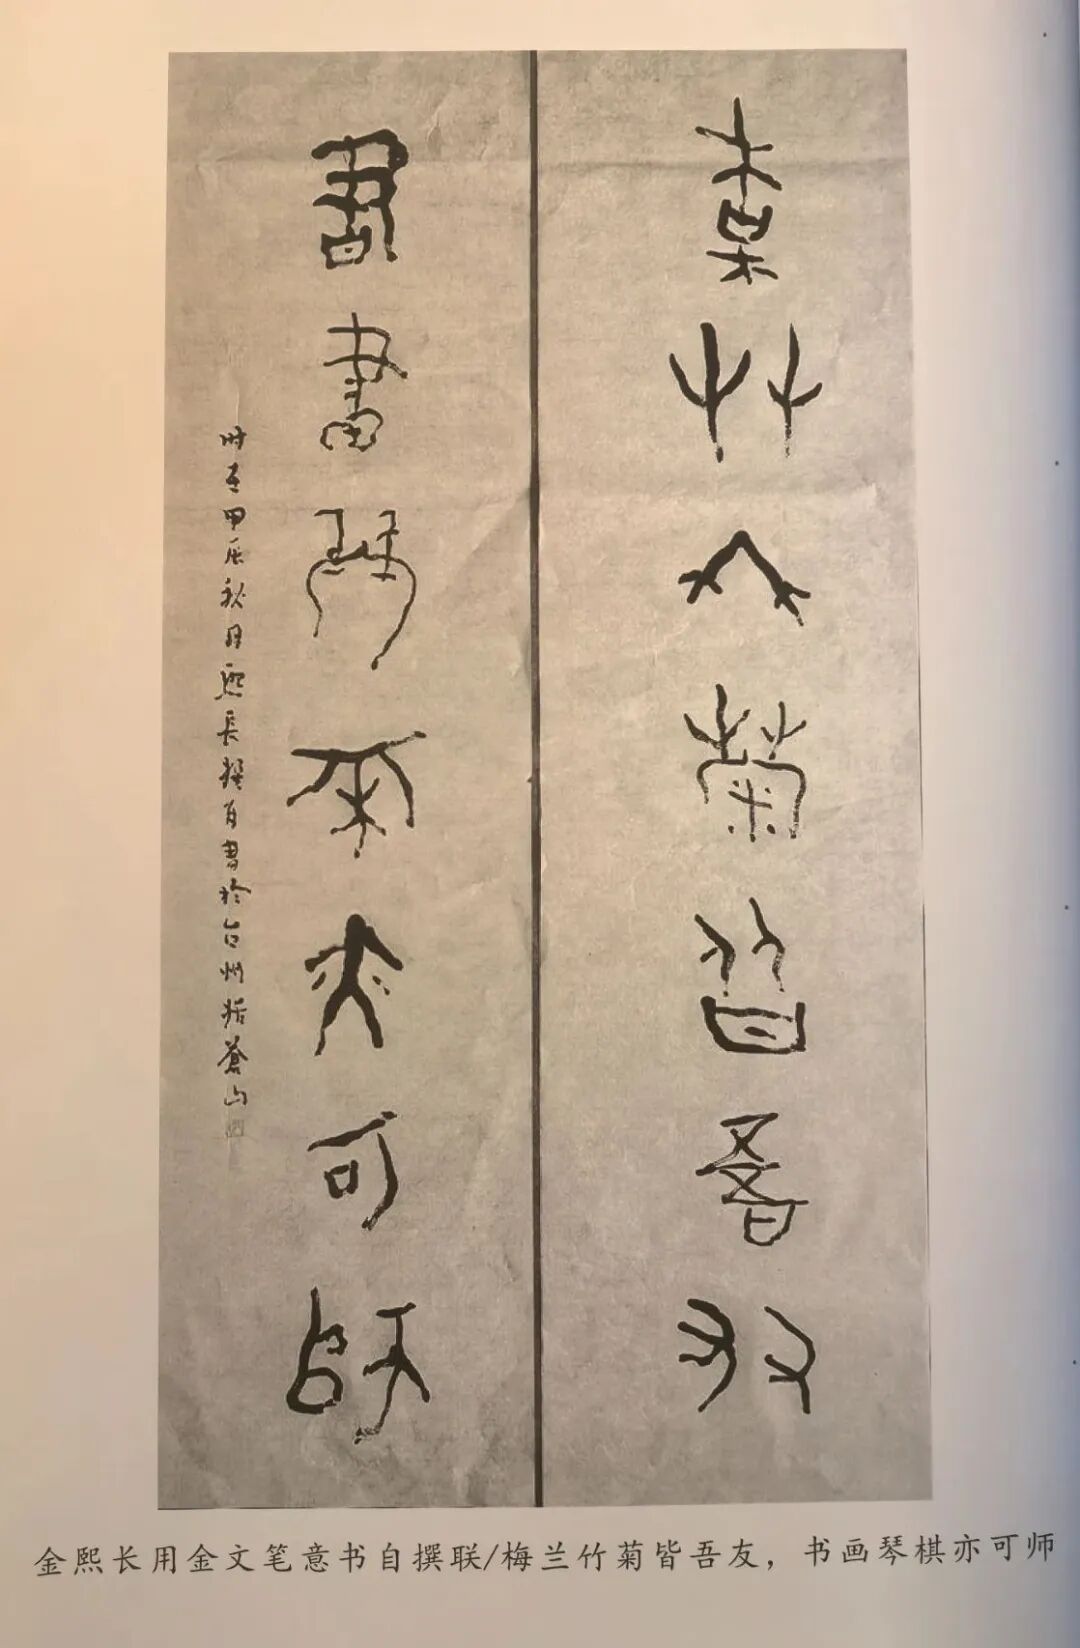 梅蘭竹菊皆吾友
書畫琴棋亦可師
甲辰秋月熙長撰并書於台州括蒼山
金熙长用金文笔意书自撰联/梅兰竹菊皆吾友，书画琴棋亦可师